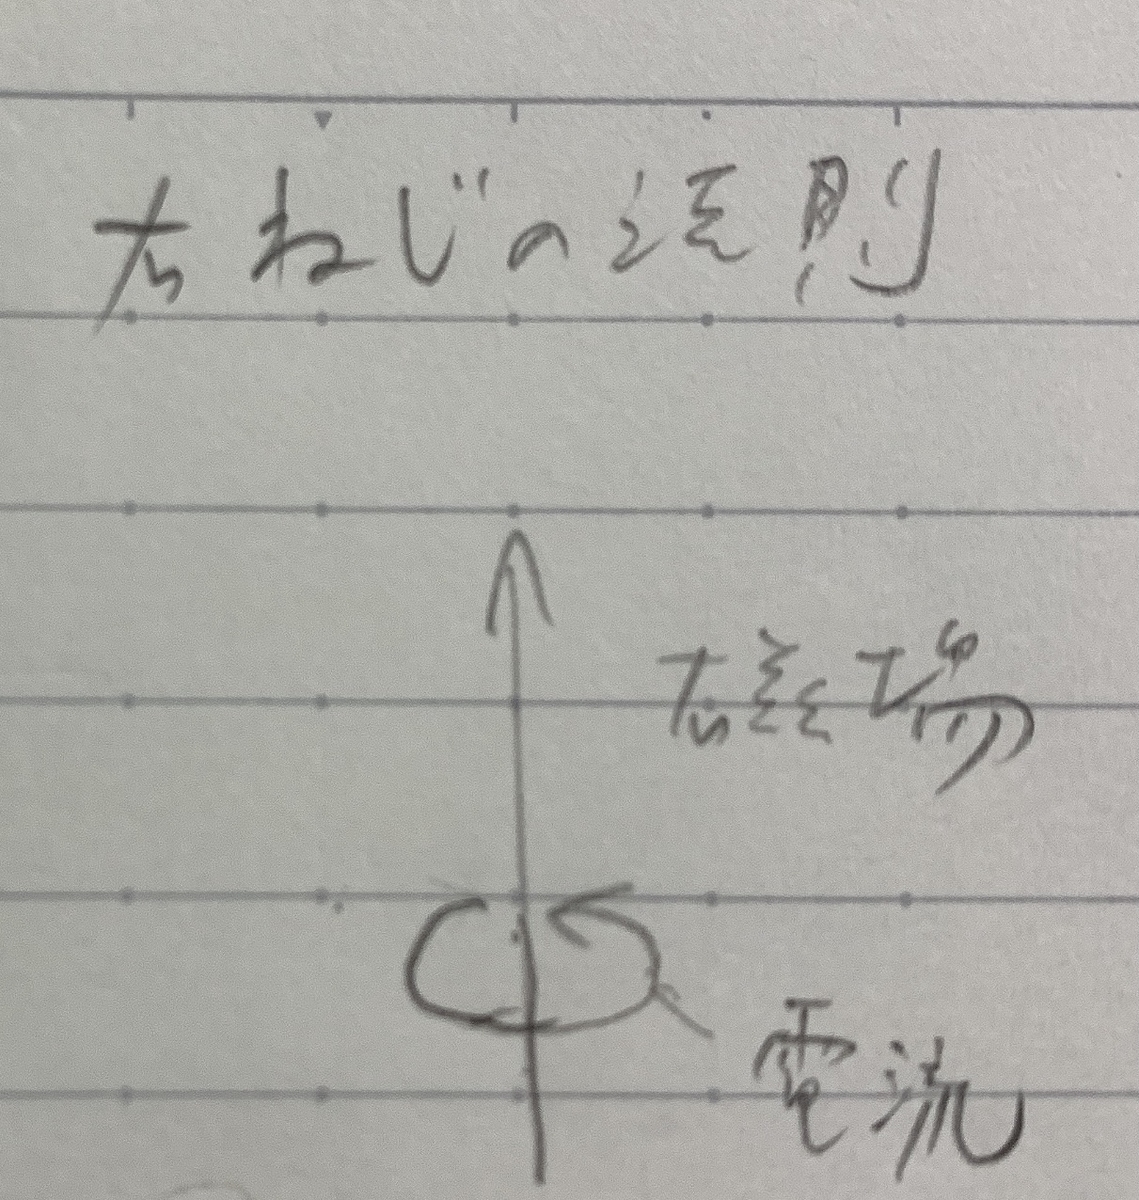 右ねじの法則
磁場
電流